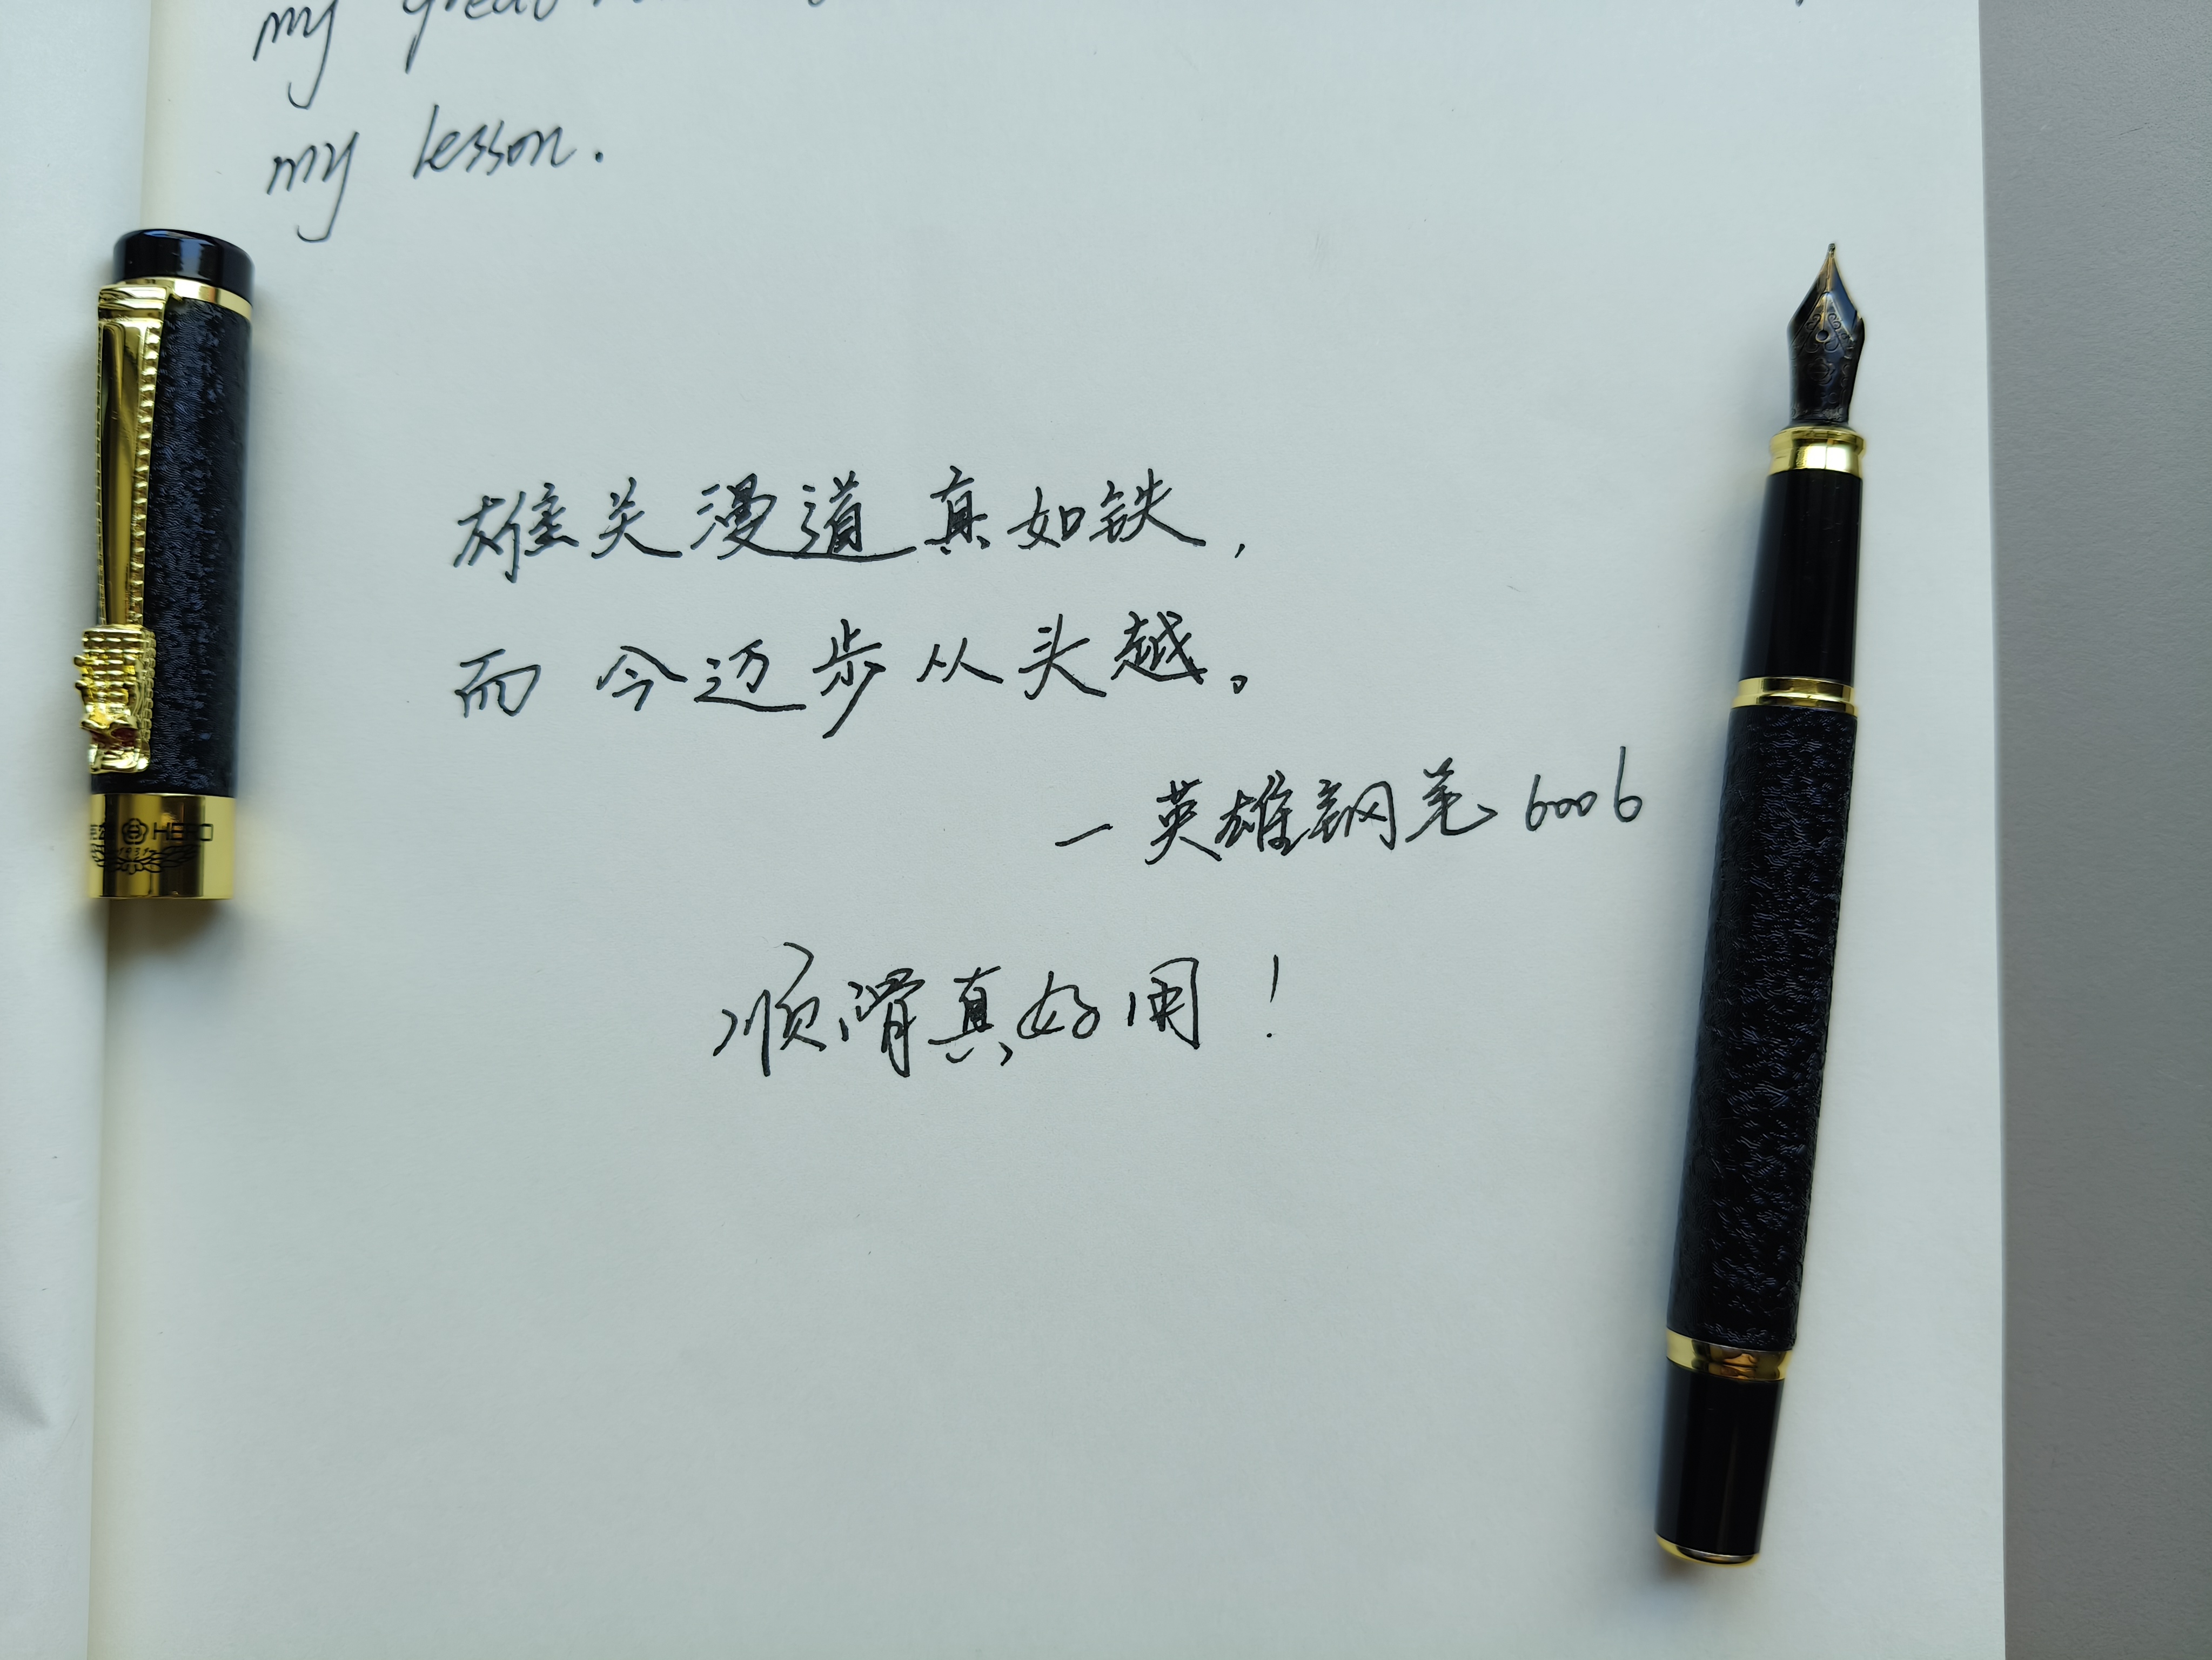 my great
my lesson.
雄关漫道真如铁，
而今迈步从头越。
一英雄钢笔 6006
顺滑真好用！
HERO
1931